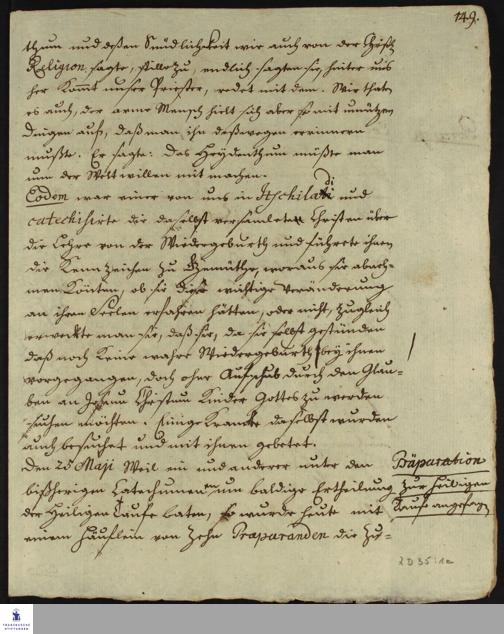 149.
thum und deßen Sündlichkeit wie auch von der Christl.
Religion sagte, stille zu, endlich sagten sie, hinter uns
her komt unser Priester, redet mit dem. Wir thaten
es auch, der arme Mensch hielt sich aber so mit unützen
Dingen auf, daß man ihn deßwegen erinnern
mußte. Er sagte: das Heydenthum müßte man
um der Welt willen mit machen.
Eodem war einer von uns in Itschiladi und
catechisirte die daselbst versamleten Christen über
die Lehre von der Wiedergeburth und führete ihnen
die Kennzeichen zu Gemüthe, woraus sie abneh-
men könten, ob sie diese wichtige Veränderung
an ihren Seelen erfahren hätten, oder nicht, zugleich
erweckte man sie, daß sie, da sie selbst gestünden
daß noch keine wahre Wiedergeburth bey ihnen
vorgegangen, doch ohne Aufschub durch den Glau-
ben an Jesum Christum Kinder Gottes zu werden
suchen möchten. Einige Krancke daselbst wurden
auch besuchet und mit ihnen gebetet.
Den 25 Maji Weil ein und anderer unter den
bißherigen Catechumenen um baldige Ertheilung
der Heiligen Taufe baten, so wurde heute mit
einem Häuflein von Zehn Præparanden die Zu-
Präparation
zur heiligen
Taufe angefangen
2 D 35:1a
FRANCKESCHE STIFTUNGEN